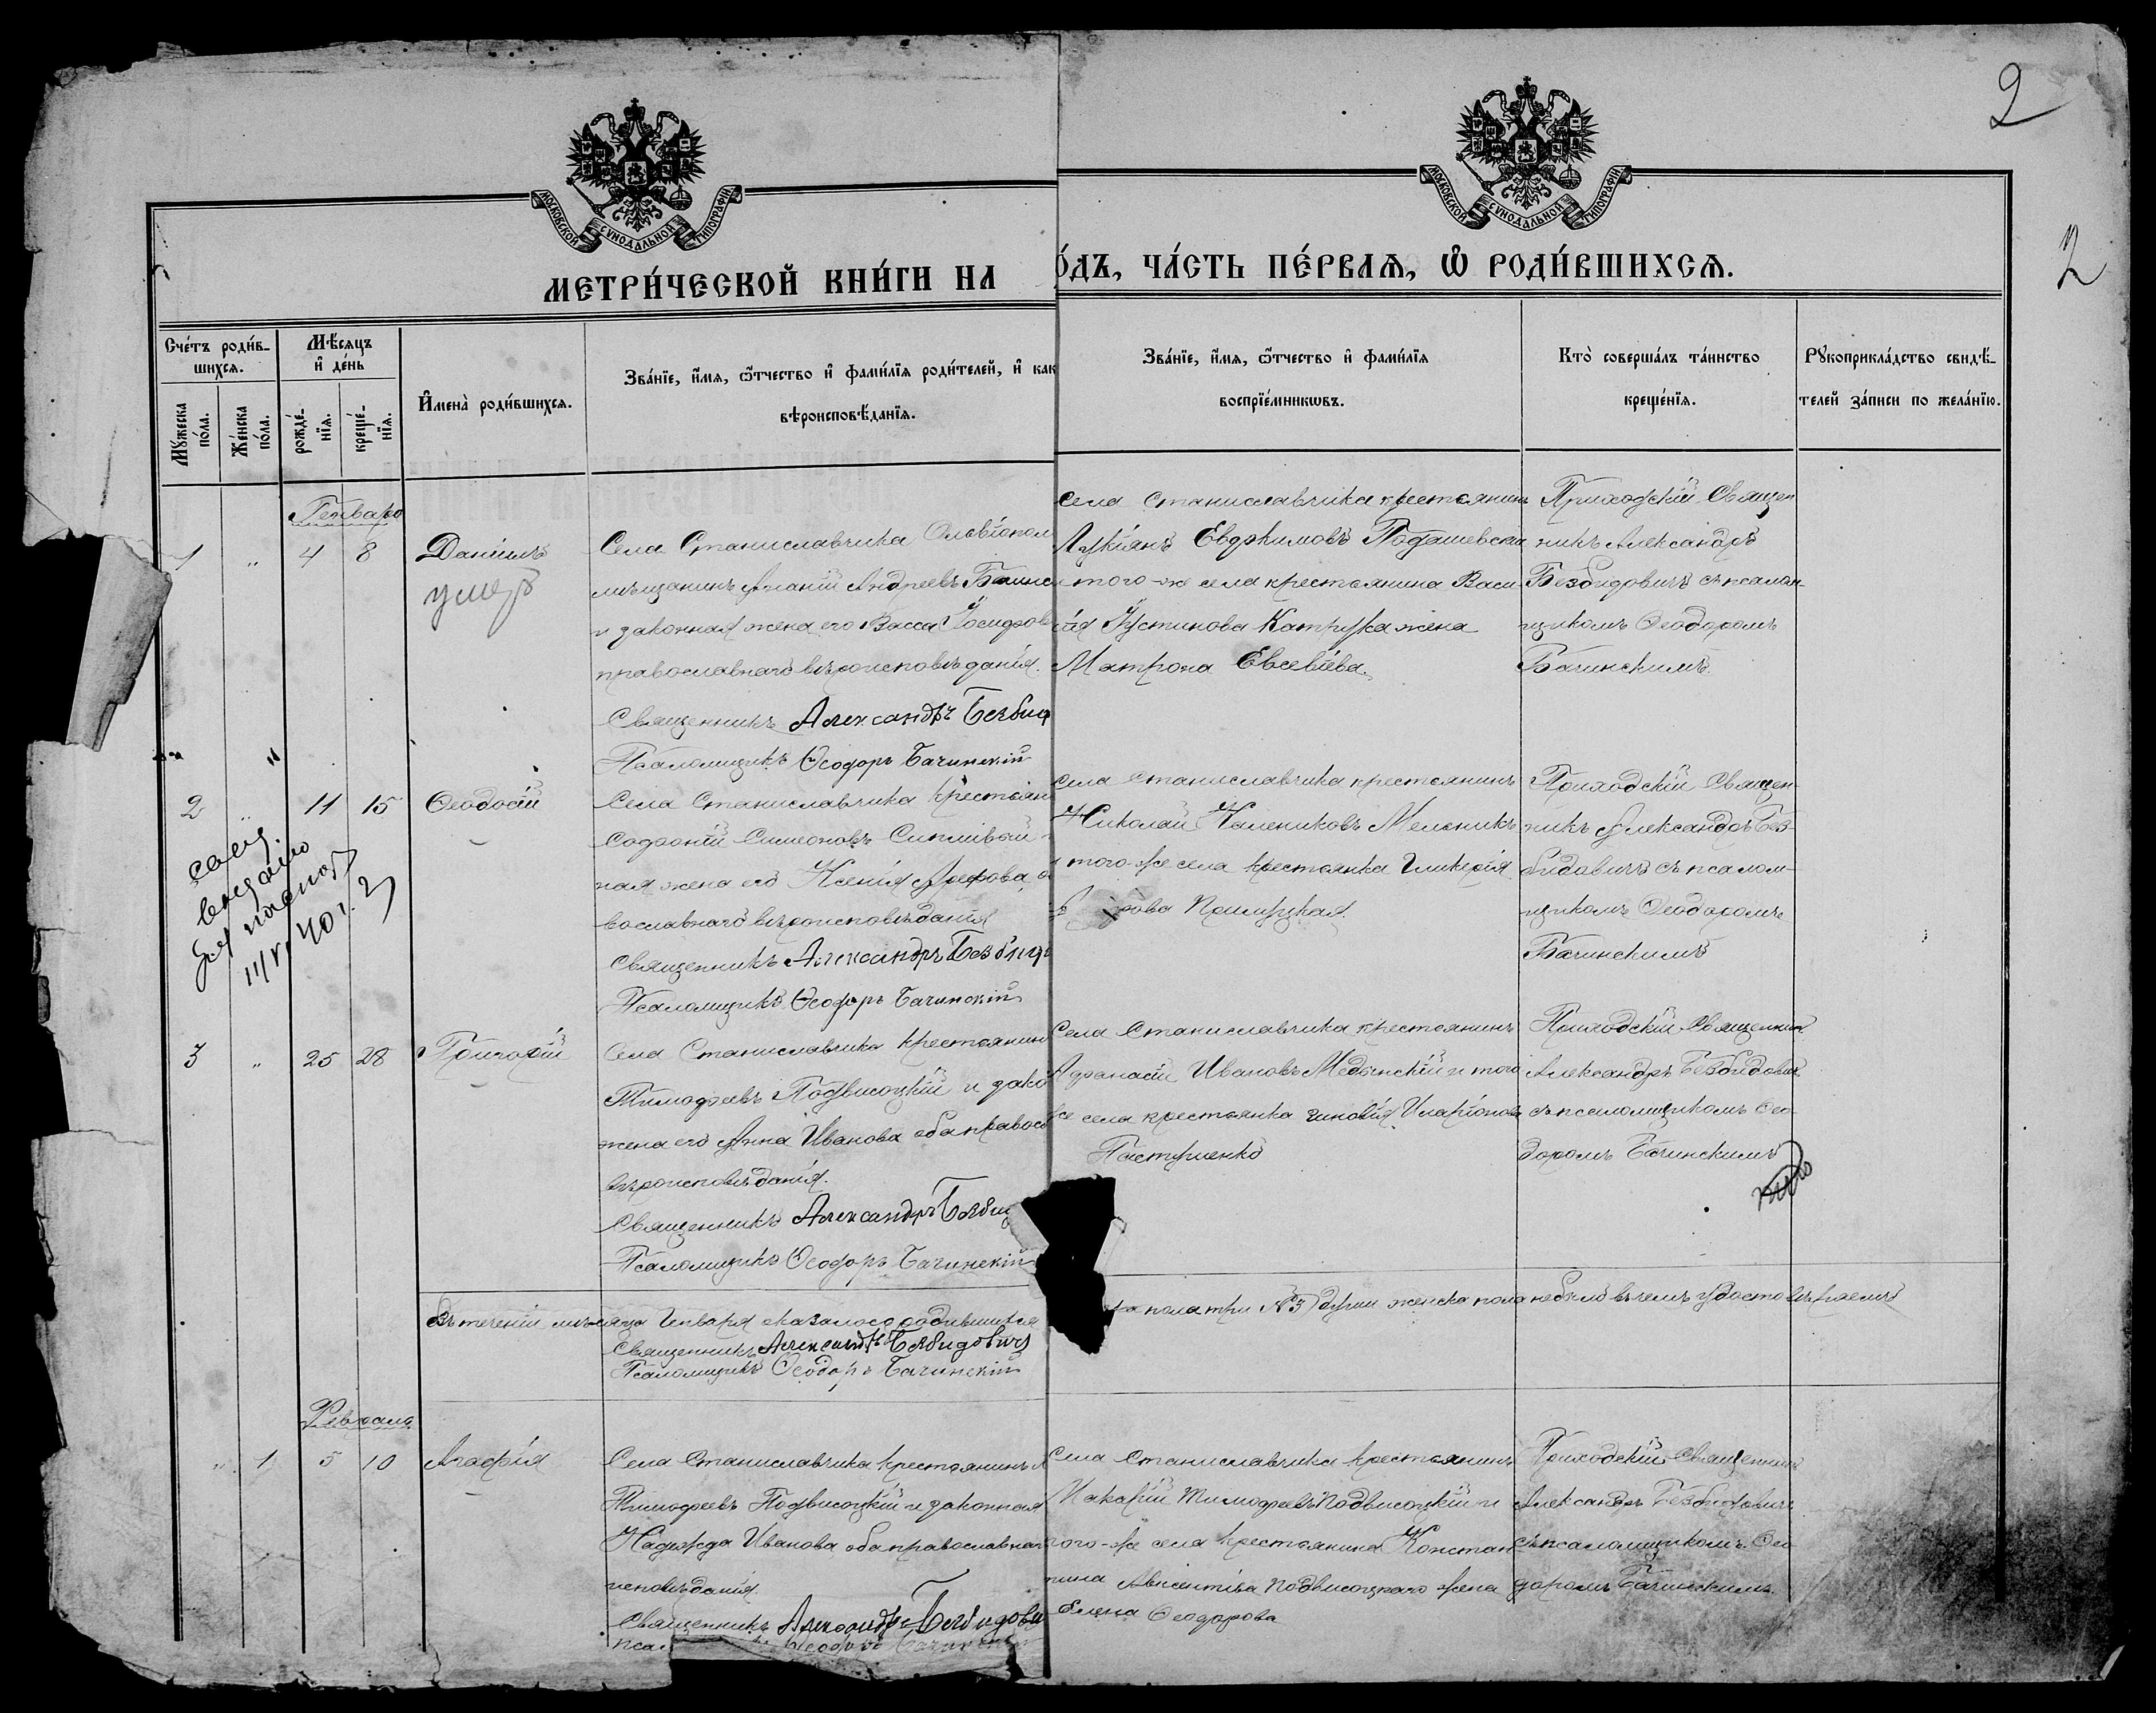 2
2
МОСКОВСКОЙ СѴНОДАЛЬНОЙ ТИПОГРАФІИ
МОСКОВСКОЙ СѴНОДАЛЬНОЙ ТИПОГРАФІИ
МЕТРИ́ЧЕСКОЙ КНИ́ГИ НА
О́ДЪ, ЧА́СТЬ ПЕ́РВАѦ, Ѽ РОДИ́ВШИХСѦ.
Сче́тъ роди́в-
шихсѧ.
Мꙋ́жеска
по́ла.
Же́нска
по́ла.
Мѣ́сѧцъ
и҆ де́нь
рожде́-
нїѧ.
креще́-
нїѧ.
И҆мена̀ роди́вшихсѧ.
Зва́нїе, и҆́мѧ, ѻ҆́тчество и҆ фами́лїѧ роди́телей, и҆ как
вѣроисповѣ́данїѧ.
Зва́нїе, и҆́мѧ, ѻ҆́тчество и҆ фами́лїѧ
воспрїе́мникѡвъ.
Кто̀ соверша́лъ та́инство
креще́нїѧ.
Рꙋкоприкла́дство свидѣ́-
телей за́писи по жела́нїю.
Генварь
1 " 4 8
Даніилъ
умер
Села Станиславчика Ольвіопол
мѣщанинъ Ананій Андреевъ
и законная жена его Васса Іосифов
православнаго вѣроисповѣданія.
Священникъ Александръ Безбид
Псаломщикъ Ѳеодоръ Бачинскій
Села Станиславчика крестьянинъ
Лукіянъ Евфимовъ Подашевскі
того-же села крестьянина Васи-
лія Густинова жена
Матрона Евсевіева.
Приходскій Священ
никъ Александръ
Безбидовичъ съ псалом
щикомъ Ѳеодоромъ
Бачинскимъ
2 " 11 15
Ѳеодосій
40 г.
Села Станиславчика крестьян
Софроній Симеоновъ
ная жена его Ксенія
вославнаго вѣроисповѣданія
Священникъ Александръ Безбид
Псаломщикъ Ѳеодоръ Бачинскій
Села Станиславчика крестьянинъ
Николай Калениковъ Мельникъ
и того-же села крестьянка Гликерія
Прилуцкая
Приходскій Священ
никъ Александръ Без-
бидовичъ съ псалом-
щикомъ Ѳеодоромъ
Бачинскимъ
3 " 25 28
Григорій
Села Станиславчика крестьянин
Тимофеевъ Подвисоцкій и зако
жена его Анна Иванова оба правос
вѣроисповѣданія.
Священникъ Александръ Безбид
Псаломщикъ Ѳеодоръ Бачинскій
Села Станиславчика крестьянинъ
Афанасій Ивановъ Медынскій и того
же села крестьянка Зиновія Иларіонова
Пастушенко
Приходскій Священник
Александръ Безбидович
съ псаломщикомъ Ѳео
доромъ Бачинскимъ
Въ теченіи мѣсяца Генваря оказалось родившихся
ка пола три №3 души женска пола не было въ чемъ удостовѣряемъ
Священникъ Александръ Безбидовичъ
Псаломщикъ Ѳеодоръ Бачинскій
Февраль
" 1 5 10
Агафія
Села Станиславчика крестьянинъ
Тимофеевъ Подвисоцкій и законная
Надежда Иванова оба православнаг
исповѣданія
Священникъ Александръ Безбидови
Псал Ѳеодоръ Бачински
Села Станиславчика крестьянинъ
Макарій Тимофеевъ Подвисоцкій и
того-же села крестьянина Констан
тина Авксентіева Подвисоцкаго жена
Елена Ѳеодорова
Приходскій Священникъ
Александръ Безбидовичъ
съ псаломщикомъ Ѳео
доромъ Бачинскимъ